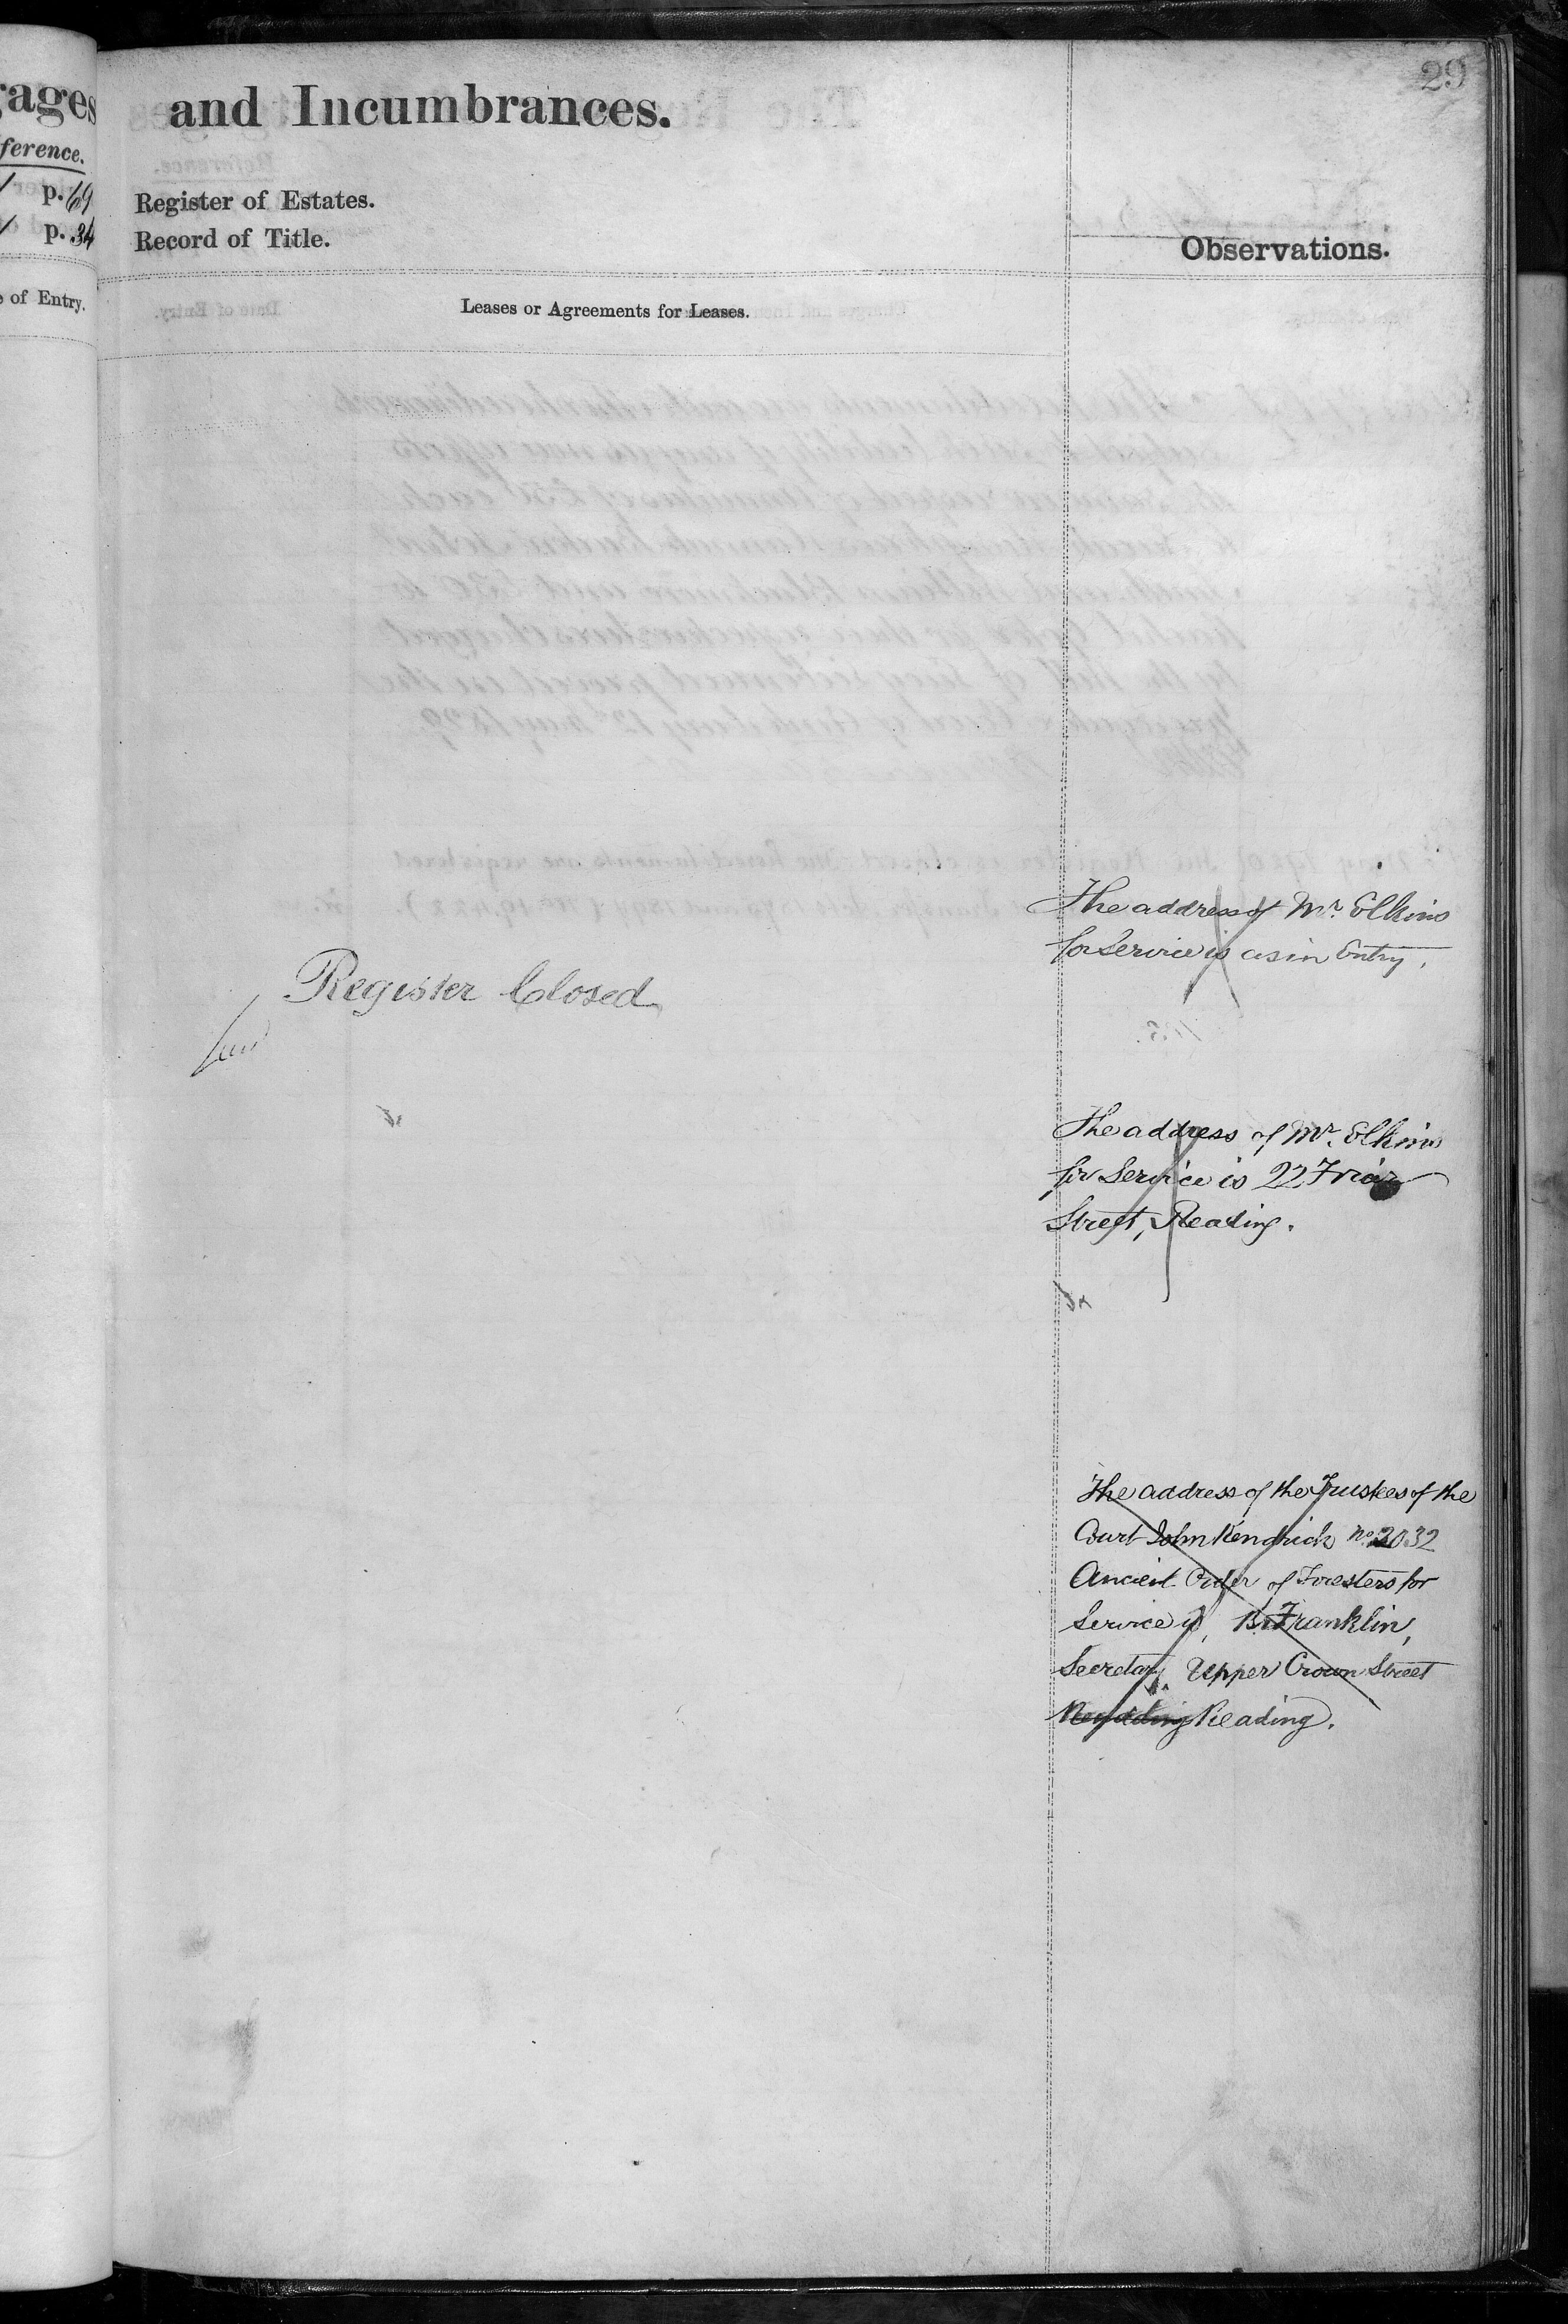 29
rages
and Incumbrances.
ference.
p. 69
Register of Estates.
p. 34
Record of Title.
Observations.
of Entry.
Leases or Agreements for Leases.
The address of Mr. Elkins
for Service is as in Entry.
Register Closed
The address of Mr. Elkins
for Service is 22 Friar
Street, Reading.
The address of the Trustees of the
Court John Kendrick No. 2032
Ancient Order of Foresters for
Service is, B. Franklin,
Secretary. Upper Crown Street
Reading.